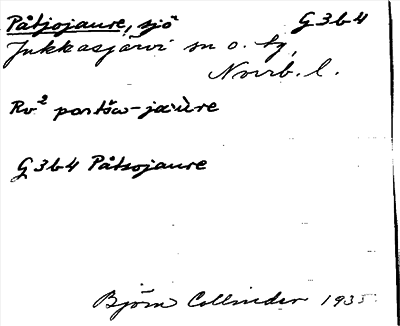 Påtjojaure, sjö G 3 b 4
Jukkasjärvi sn o. tg,
Norrb. l.
Rv² portšw-jæùre
G 3 b 4 Påtsojaure
Björn Collinder 1935